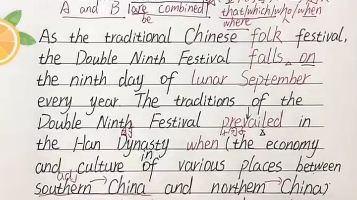 A and B (are combined)
be
that/which/who/when
where
As the traditional Chinese folk festival,
the Double Ninth Festival falls on
the ninth day of lunar September
every year. The traditions of the
Double Ninth Festival prevailed in
the Han Dynasty when (the economy
in
and culture of various places between
adj
southern → China and northern → China)